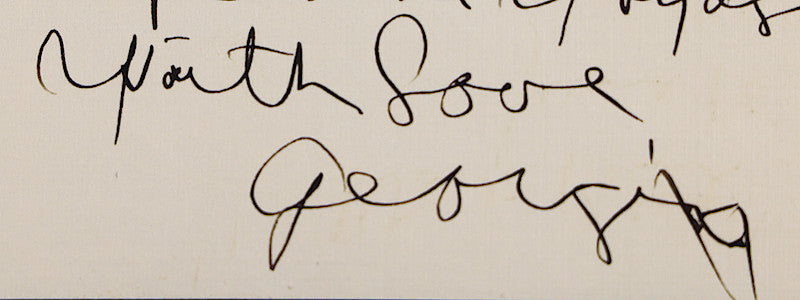 With Love
Georgia